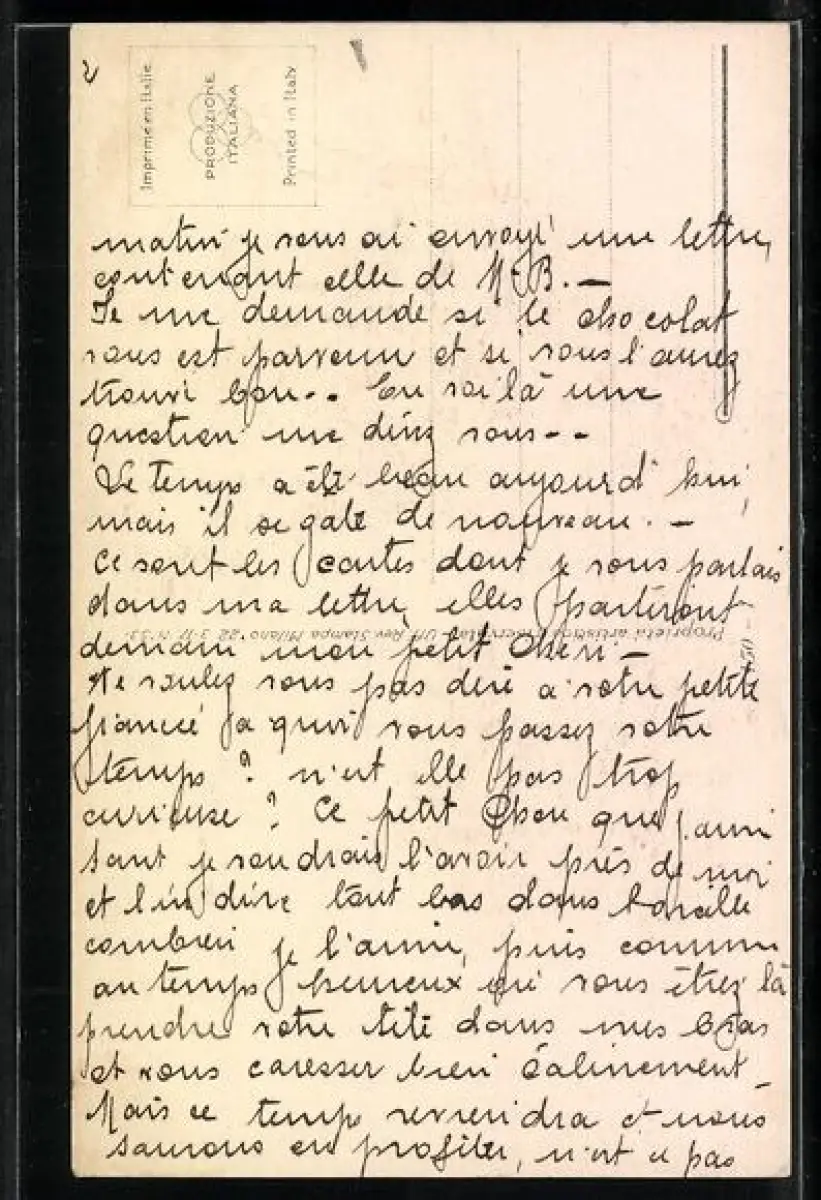 2
Imprimé en Italie
PRODUZIONE
ITALIANA
Printed in Italy
matin je vous ai envoyé une lettre,
contenant celle de M B. —
Je me demande si le chocolat
vous est parvenu et si vous l'aurez
trouvé bon.. En voilà une
question me direz vous--
Le temps a été beau aujourd'hui,
mais il se gate de nouveau. —
Ce sont les cartes dont je vous parlais
dans ma lettre, elles partiront
Proprietà artistica riservata - Uff. Rev. Stampa Milano
demain mon petit Chéri —
Ne voulez vous pas dire à votre petite
fiancée à quoi vous passez votre
temps ? n'est elle pas trop
curieuse ? Ce petit Chou que j'aime
tant je voudrais l'avoir près de moi
et lui dire tout bas dans l'oreille
combien je l'aime, puis comme
au temps heureux où vous étiez là
prendre votre tête dans mes bras
et vous caresser bien calinement
Mais ce temps reviendra et nous
saurons en profiter, n'est ce pas